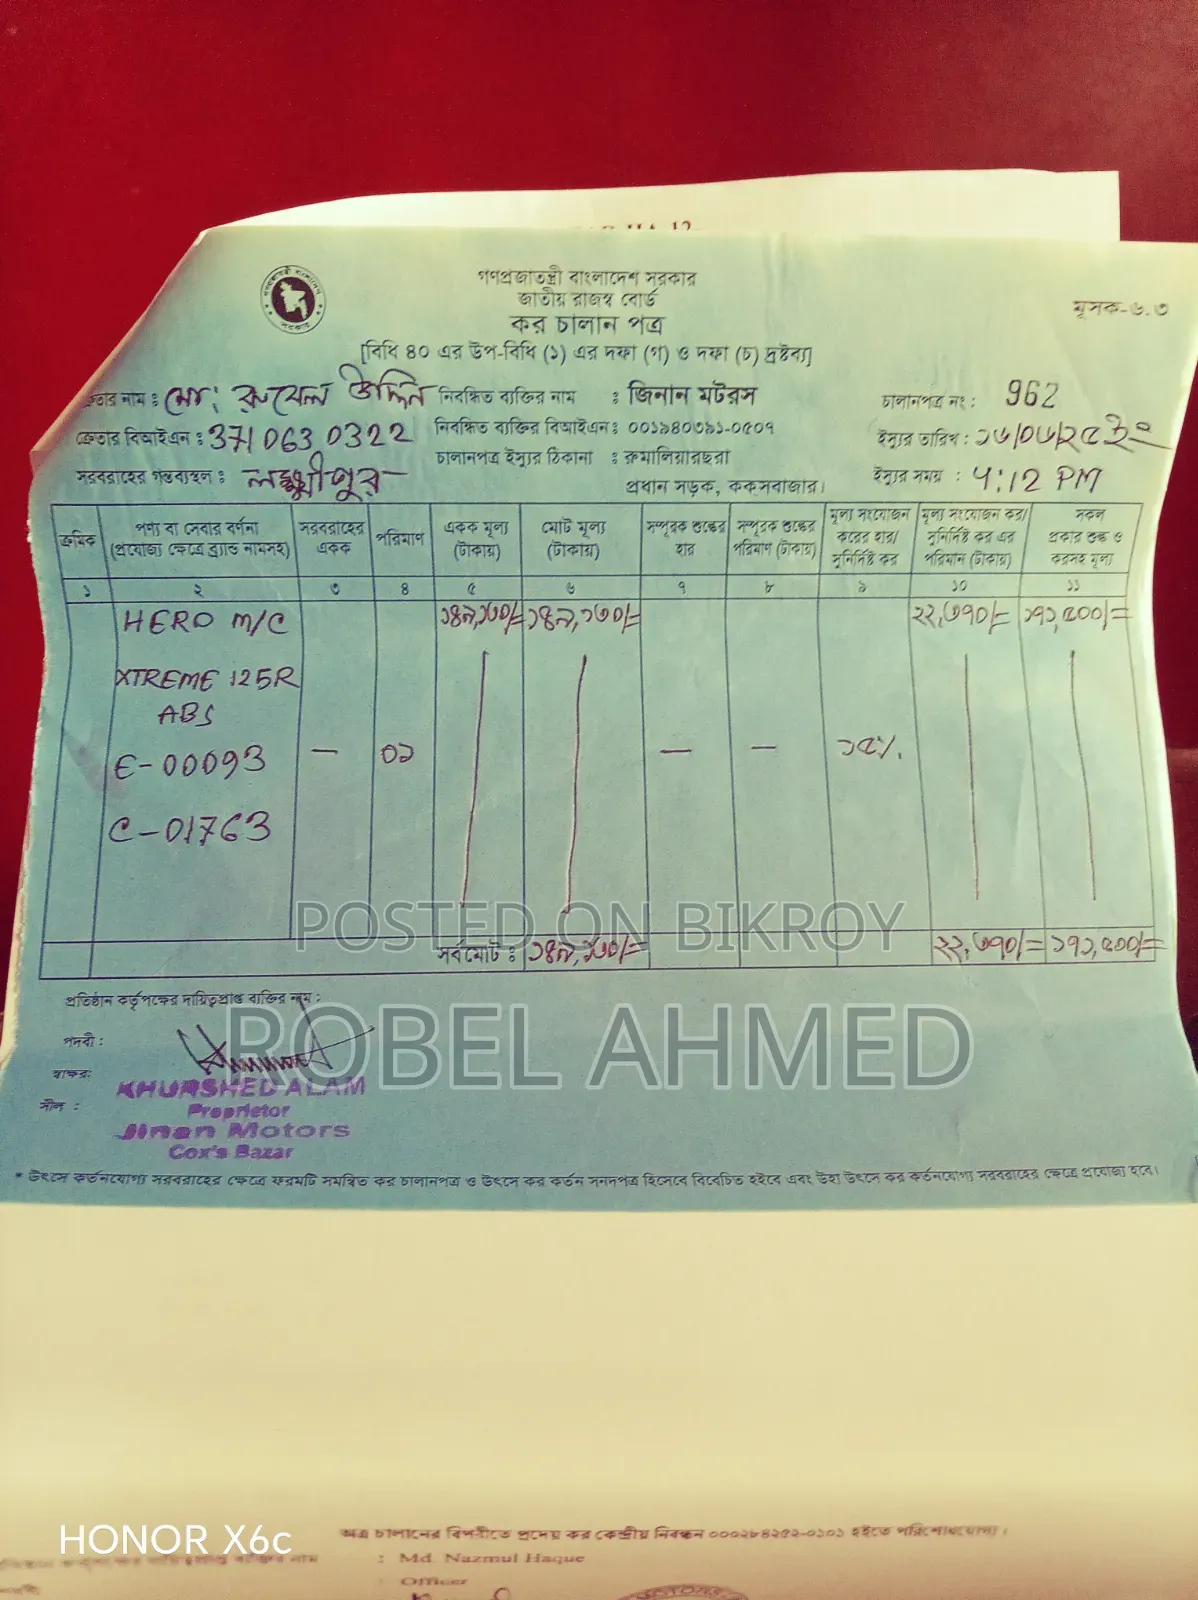 গণপ্রজাতন্ত্রী বাংলাদেশ সরকার
জাতীয় রাজস্ব বোর্ড
কর চালান পত্র
মূসক-৬.৩
[বিধি ৪০ এর উপ-বিধি (১) এর দফা (গ) ও দফা (চ) দ্রষ্টব্য]
নাম : মো: রুবেল উদ্দিন নিবন্ধিত ব্যক্তির নাম : জিনান মটরস চালানপত্র নং : 962
ক্রেতার বিআইএন : 371 063 0322 নিবন্ধিত ব্যক্তির বিআইএন : ০০১৯৪০৩৯১-০৫০৭ ইস্যুর তারিখ :
সরবরাহের গন্তব্যস্থল : লক্ষ্মীপুর চালানপত্র ইস্যুর ঠিকানা : রুমালিয়ারছরা ইস্যুর সময় : 4:12 PM
প্রধান সড়ক, কক্সবাজার।
ক্রমিক পণ্য বা সেবার বর্ণনা (প্রযোজ্য ক্ষেত্রে ব্র্যান্ড নামসহ) সরবরাহের একক পরিমাণ একক মূল্য (টাকায়) মোট মূল্য (টাকায়) সম্পূরক শুল্কের হার সম্পূরক শুল্কের পরিমাণ (টাকায়) মূল্য সংযোজন করের হার/ সুনির্দিষ্ট কর মূল্য সংযোজন কর/ সুনির্দিষ্ট কর এর পরিমান (টাকায়) সকল প্রকার শুল্ক ও করসহ মূল্য
১ ২ ৩ ৪ ৫ ৬ ৭ ৮ ৯ ১০ ১১
HERO M/C ১৪৯,১৩০/= ১৪৯,১৩০/= ২২,৩৭০/= ১৭১,৫০০/=
XTREME 125R
ABS
E-00093 — ০১ — — ১৫%
C-01763
সর্বমোট : ১৪৯,১৩০/= ২২,৩৭০/= ১৭১,৫০০/=
POSTED ON BIKROY
প্রতিষ্ঠান কর্তৃপক্ষের দায়িত্বপ্রাপ্ত ব্যক্তির নাম :
পদবী :
ROBEL AHMED
স্বাক্ষর:
KHURSHED ALAM
সীল :
Proprietor
Jinan Motors
Cox's Bazar
* উৎসে কর্তনযোগ্য সরবরাহের ক্ষেত্রে ফরমটি সমন্বিত কর চালানপত্র ও উৎসে কর কর্তন সনদপত্র হিসেবে বিবেচিত হইবে এবং উহা উৎসে কর কর্তনযোগ্য সরবরাহের ক্ষেত্রে প্রযোজ্য হবে।
অত্র চালানের বিপরীতে প্রদেয় কর কেন্দ্রীয় নিবন্ধন ০০০২৮৪২৫২-০১০১ হইতে পরিশোধযোগ্য।
HONOR X6c
: Md. Nazmul Haque
: Officer